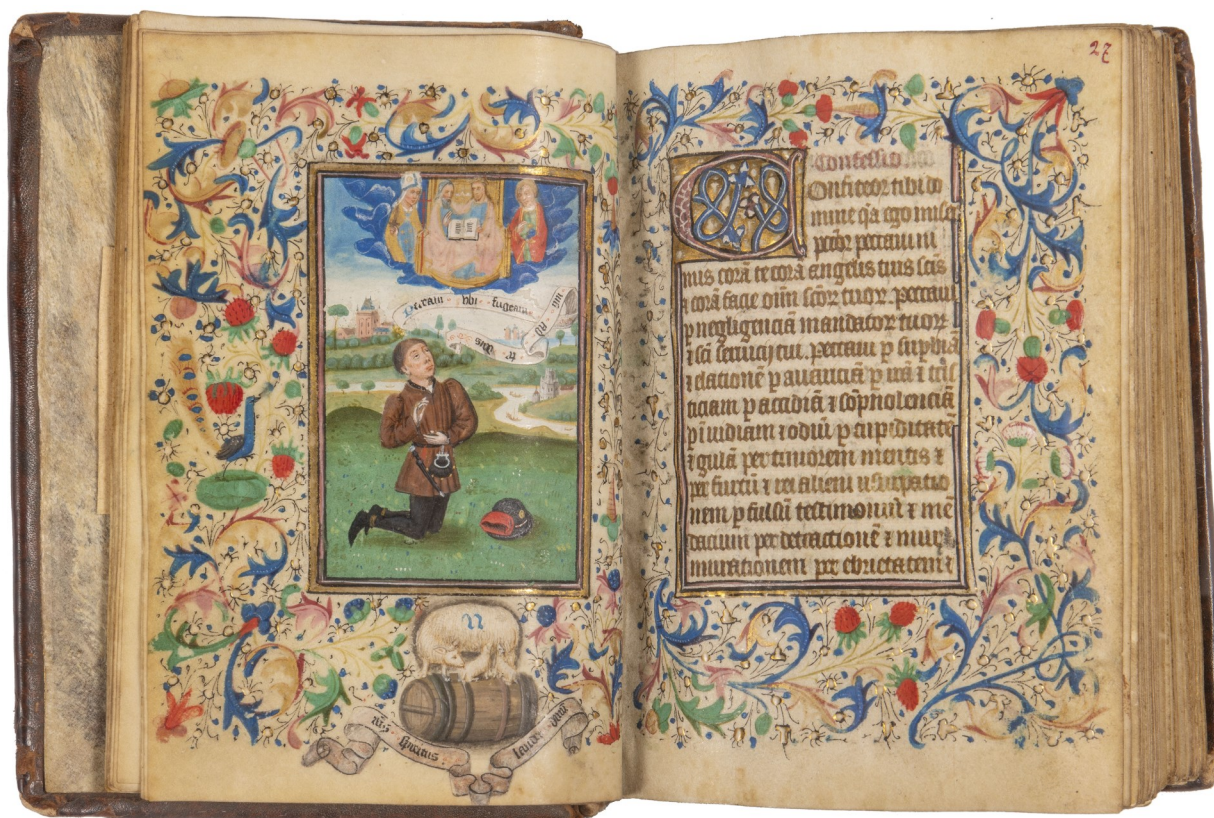 Peccavi · vbi · fugeam
nisi · ad
te · deus
spiritus
27
Confessio
Onfiteor tibi do
mine qa ego miser
pctor peccaui ni
mis corã te corã angelis tuis scis
⁊ corã facie oĩm scor tuor peccaui
p negligenciã mandator tuor
⁊ sci seruicij tui. Peccaui p supbiã
⁊ elacionẽ p auariciã p irã ⁊ tris
ticiam p accidiã ⁊ sopnolenciã
p inuidiam ⁊ odiũ p cupiditatẽ
⁊ gulã per timorem mortis ⁊
per furtũ ⁊ rei alieni usurpatio
nem p falsũ testimoniũ ⁊ me
daciũm per detractionẽ ⁊ mur
murationem per ebrietatem ⁊